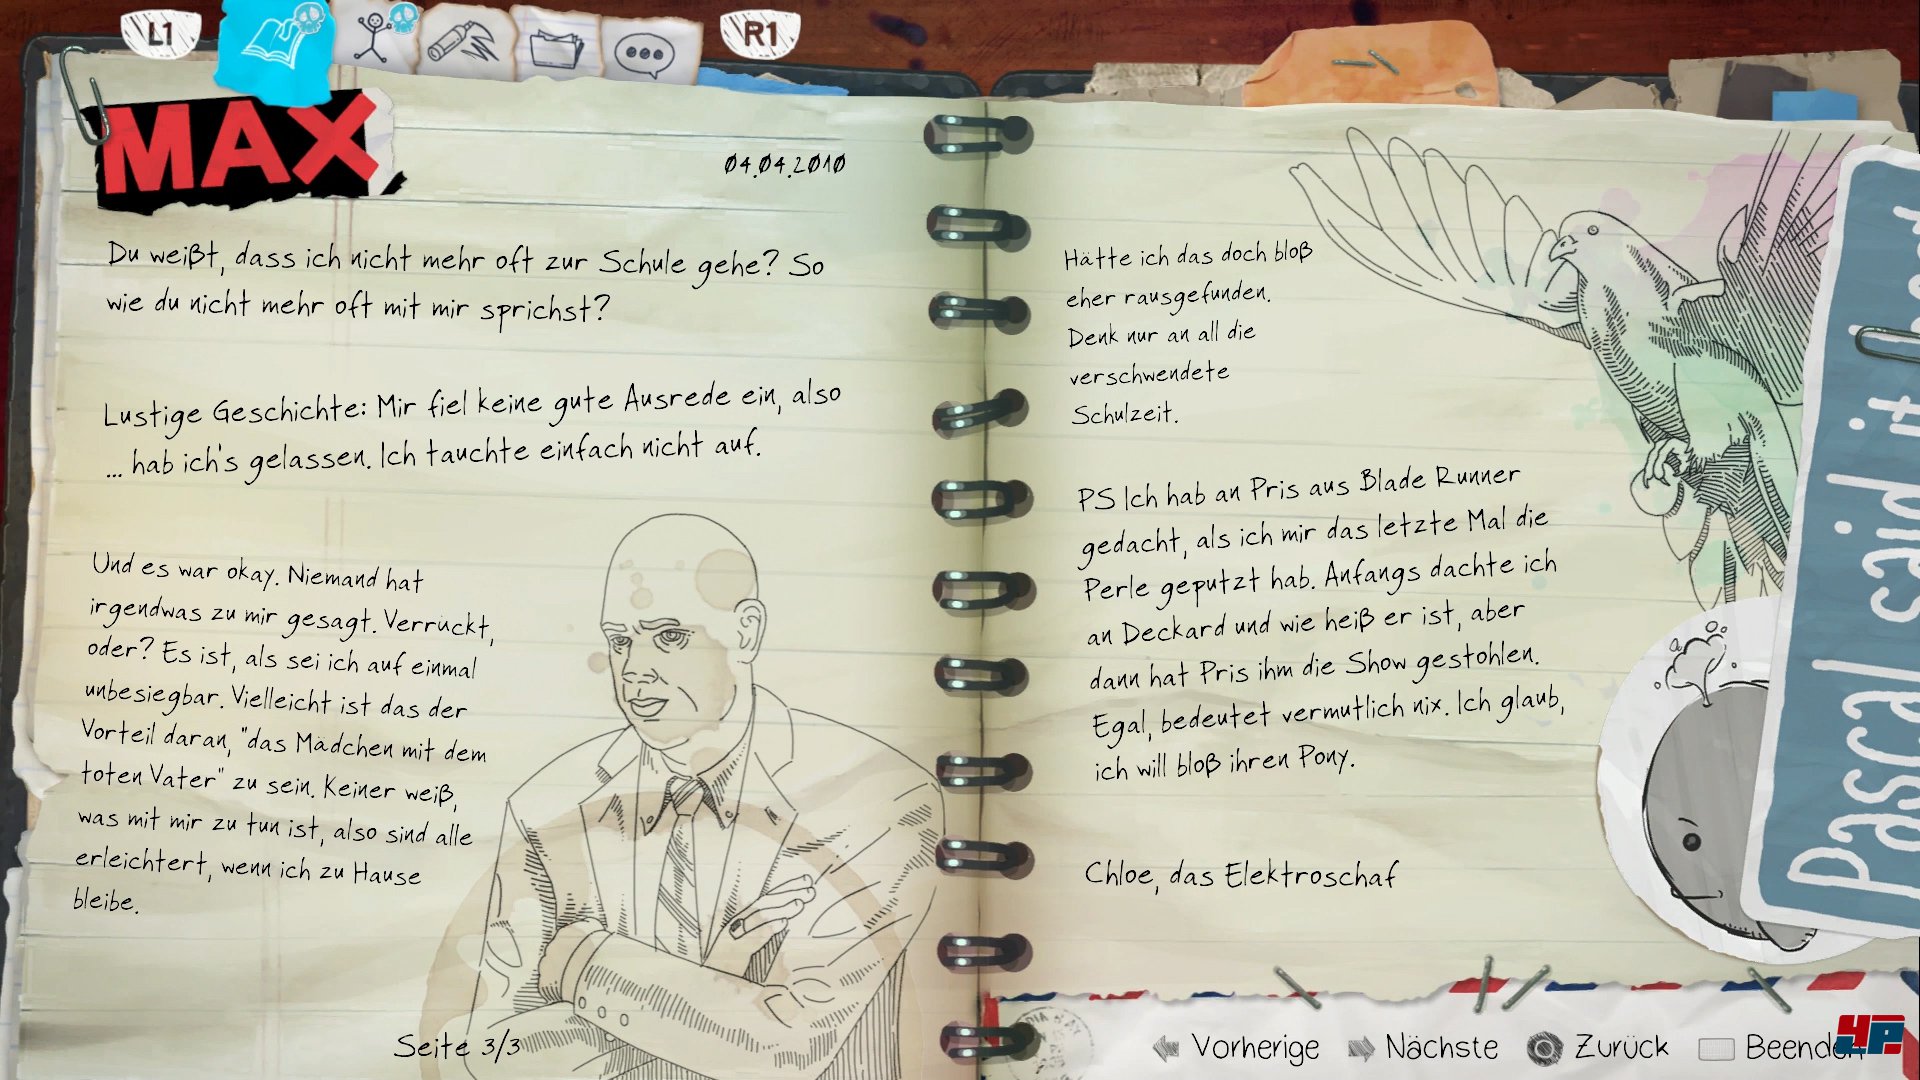 L1
R1
MAX
04.04.2010
Du weißt, dass ich nicht mehr oft zur Schule gehe? So
wie du nicht mehr oft mit mir sprichst?
Lustige Geschichte: Mir fiel keine gute Ausrede ein, also
... hab ich's gelassen. Ich tauchte einfach nicht auf.
Und es war okay. Niemand hat
irgendwas zu mir gesagt. Verrückt,
oder? Es ist, als sei ich auf einmal
unbesiegbar. Vielleicht ist das der
Vorteil daran, "das Mädchen mit dem
toten Vater" zu sein. Keiner weiß,
was mit mir zu tun ist, also sind alle
erleichtert, wenn ich zu Hause
bleibe.
Seite 3/3
Hätte ich das doch bloß
eher rausgefunden.
Denk nur an all die
verschwendete
Schulzeit.
PS Ich hab an Pris aus Blade Runner
gedacht, als ich mir das letzte Mal die
Perle geputzt hab. Anfangs dachte ich
an Deckard und wie heiß er ist, aber
dann hat Pris ihm die Show gestohlen.
Egal, bedeutet vermutlich nix. Ich glaub,
ich will bloß ihren Pony.
Chloe, das Elektroschaf
Pascal said it
Vorherige
Nächste
Zurück
Beenden
4P